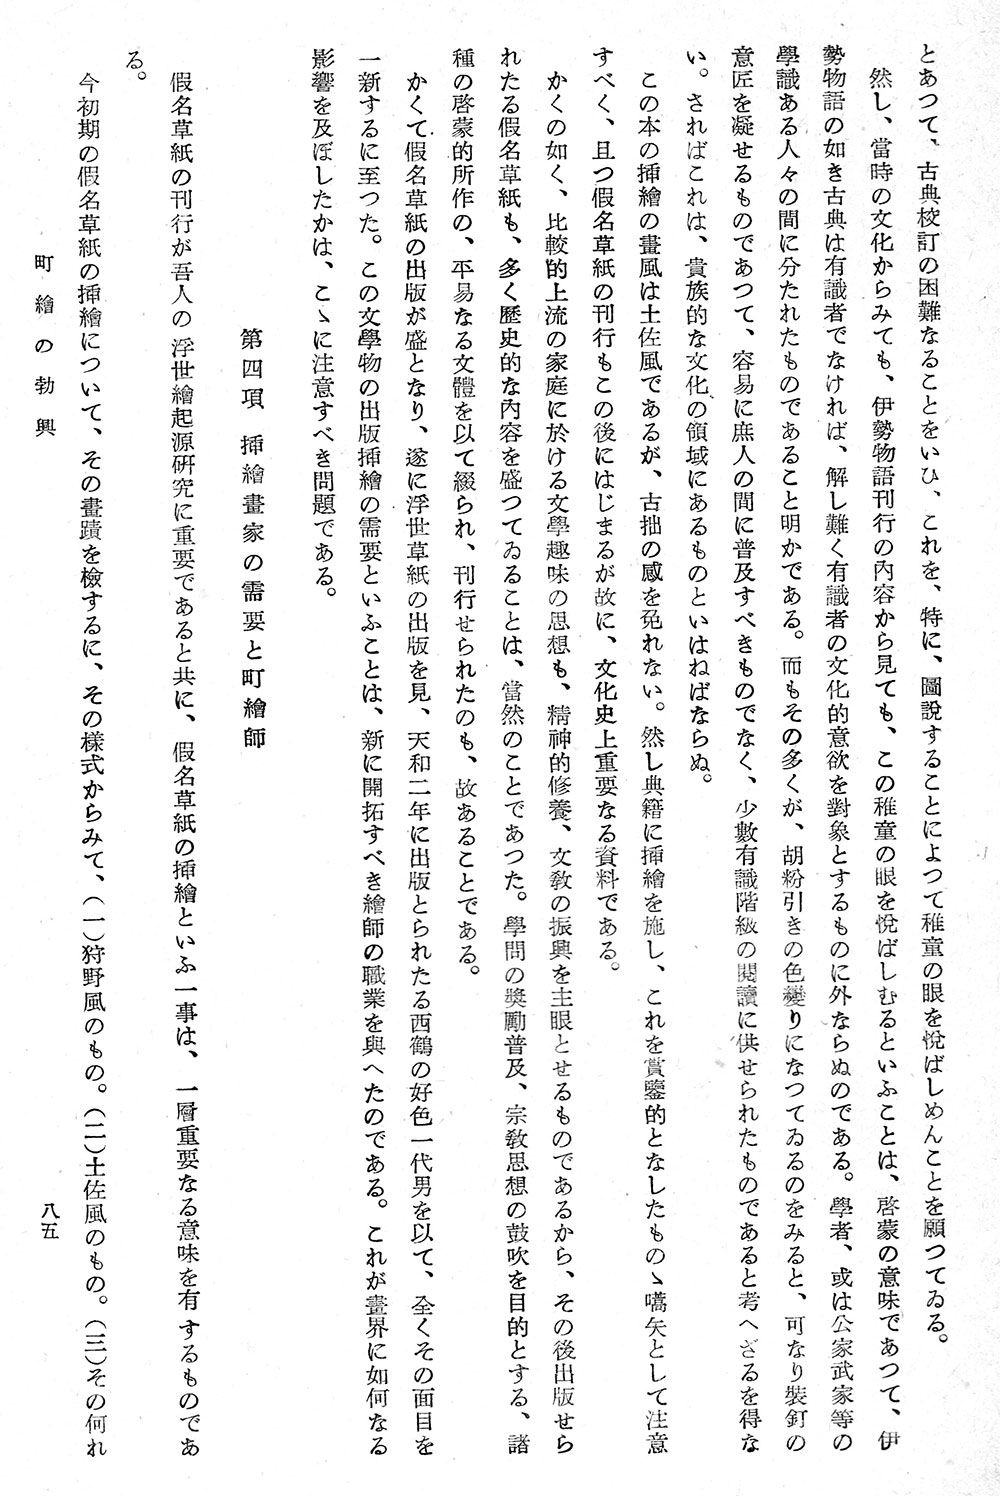 とあつて、古典校訂の困難なることをいひ、これを、特に、圖說することによつて稚童の眼を悅ばしめんことを願つてゐる。
然し、當時の文化からみても、伊勢物語刊行の內容から見ても、この稚童の眼を悅ばしむるといふことは、啓蒙の意味であつて、伊
勢物語の如き古典は有識者でなければ、解し難く有識者の文化的意欲を對象とするものに外ならぬのである。學者、或は公家武家等の
學識ある人々の間に分たれたものであること明かである。而もその多くが、胡粉引きの色變りになつてゐるのをみると、可なり裝釘の
意匠を凝せるものであつて、容易に庶人の間に普及すべきものでなく、少數有識階級の閱讀に供せられたものであると考へざるを得な
い。さればこれは、貴族的な文化の領域にあるものといはねばならぬ。
この本の揷繪の畫風は土佐風であるが、古拙の感を免れない。然し典籍に揷繪を施し、これを賞鑒的となしたものゝ嚆矢として注意
すべく、且つ假名草紙の刊行もこの後にはじまるが故に、文化史上重要なる資料である。
かくの如く、比較的上流の家庭に於ける文學趣味の思想も、精神的修養、文敎の振興を主眼とせるものであるから、その後出版せら
れたる假名草紙も、多く歷史的な內容を盛つてゐることは、當然のことであつた。學問の獎勵普及、宗敎思想の鼓吹を目的とする、諸
種の啓蒙的所作の、平易なる文體を以て綴られ、刊行せられたのも、故あることである。
かくて假名草紙の出版が盛となり、遂に浮世草紙の出版を見、天和二年に出版とられたる西鶴の好色一代男を以て、全くその面目を
一新するに至つた。この文學物の出版揷繪の需要といふことは、新に開拓すべき繪師の職業を與へたのである。これが畫界に如何なる
影響を及ぼしたかは、こゝに注意すべき問題である。
第四項 揷繪畫家の需要と町繪師
假名草紙の刊行が吾人の浮世繪起源硏究に重要であると共に、假名草紙の揷繪といふ一事は、一層重要なる意味を有するものであ
る。
今初期の假名草紙の揷繪について、その畫蹟を檢するに、その樣式からみて、(一)狩野風のもの。(二)土佐風のもの。(三)その何れ
町繪の勃興
八五